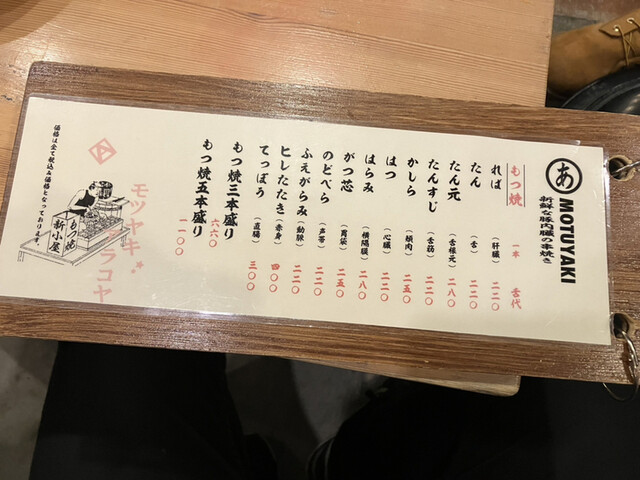 あ
MOTUYAKI
新鮮な豚内臓の串焼き
もつ焼 一本 舌代
れば (肝臓) 二二〇
たん (舌) 二二〇
たん元 (舌根元) 二八〇
たんすじ (舌筋) 二二〇
かしら (頬肉) 二五〇
はつ (心臓) 二二〇
はらみ (横隔膜) 二八〇
がつ芯 (胃袋) 二五〇
のどぺら (声帯) 二二〇
ふえがらみ (動脈) 二二〇
ヒレたたき (赤身) 四〇〇
てっぽう (直腸) 三〇〇
もつ焼三本盛り 六六〇
もつ焼五本盛り 一一〇〇
モツヤキ
ラコヤ
もつ焼
新小屋
価格は全て税込み価格となっております。